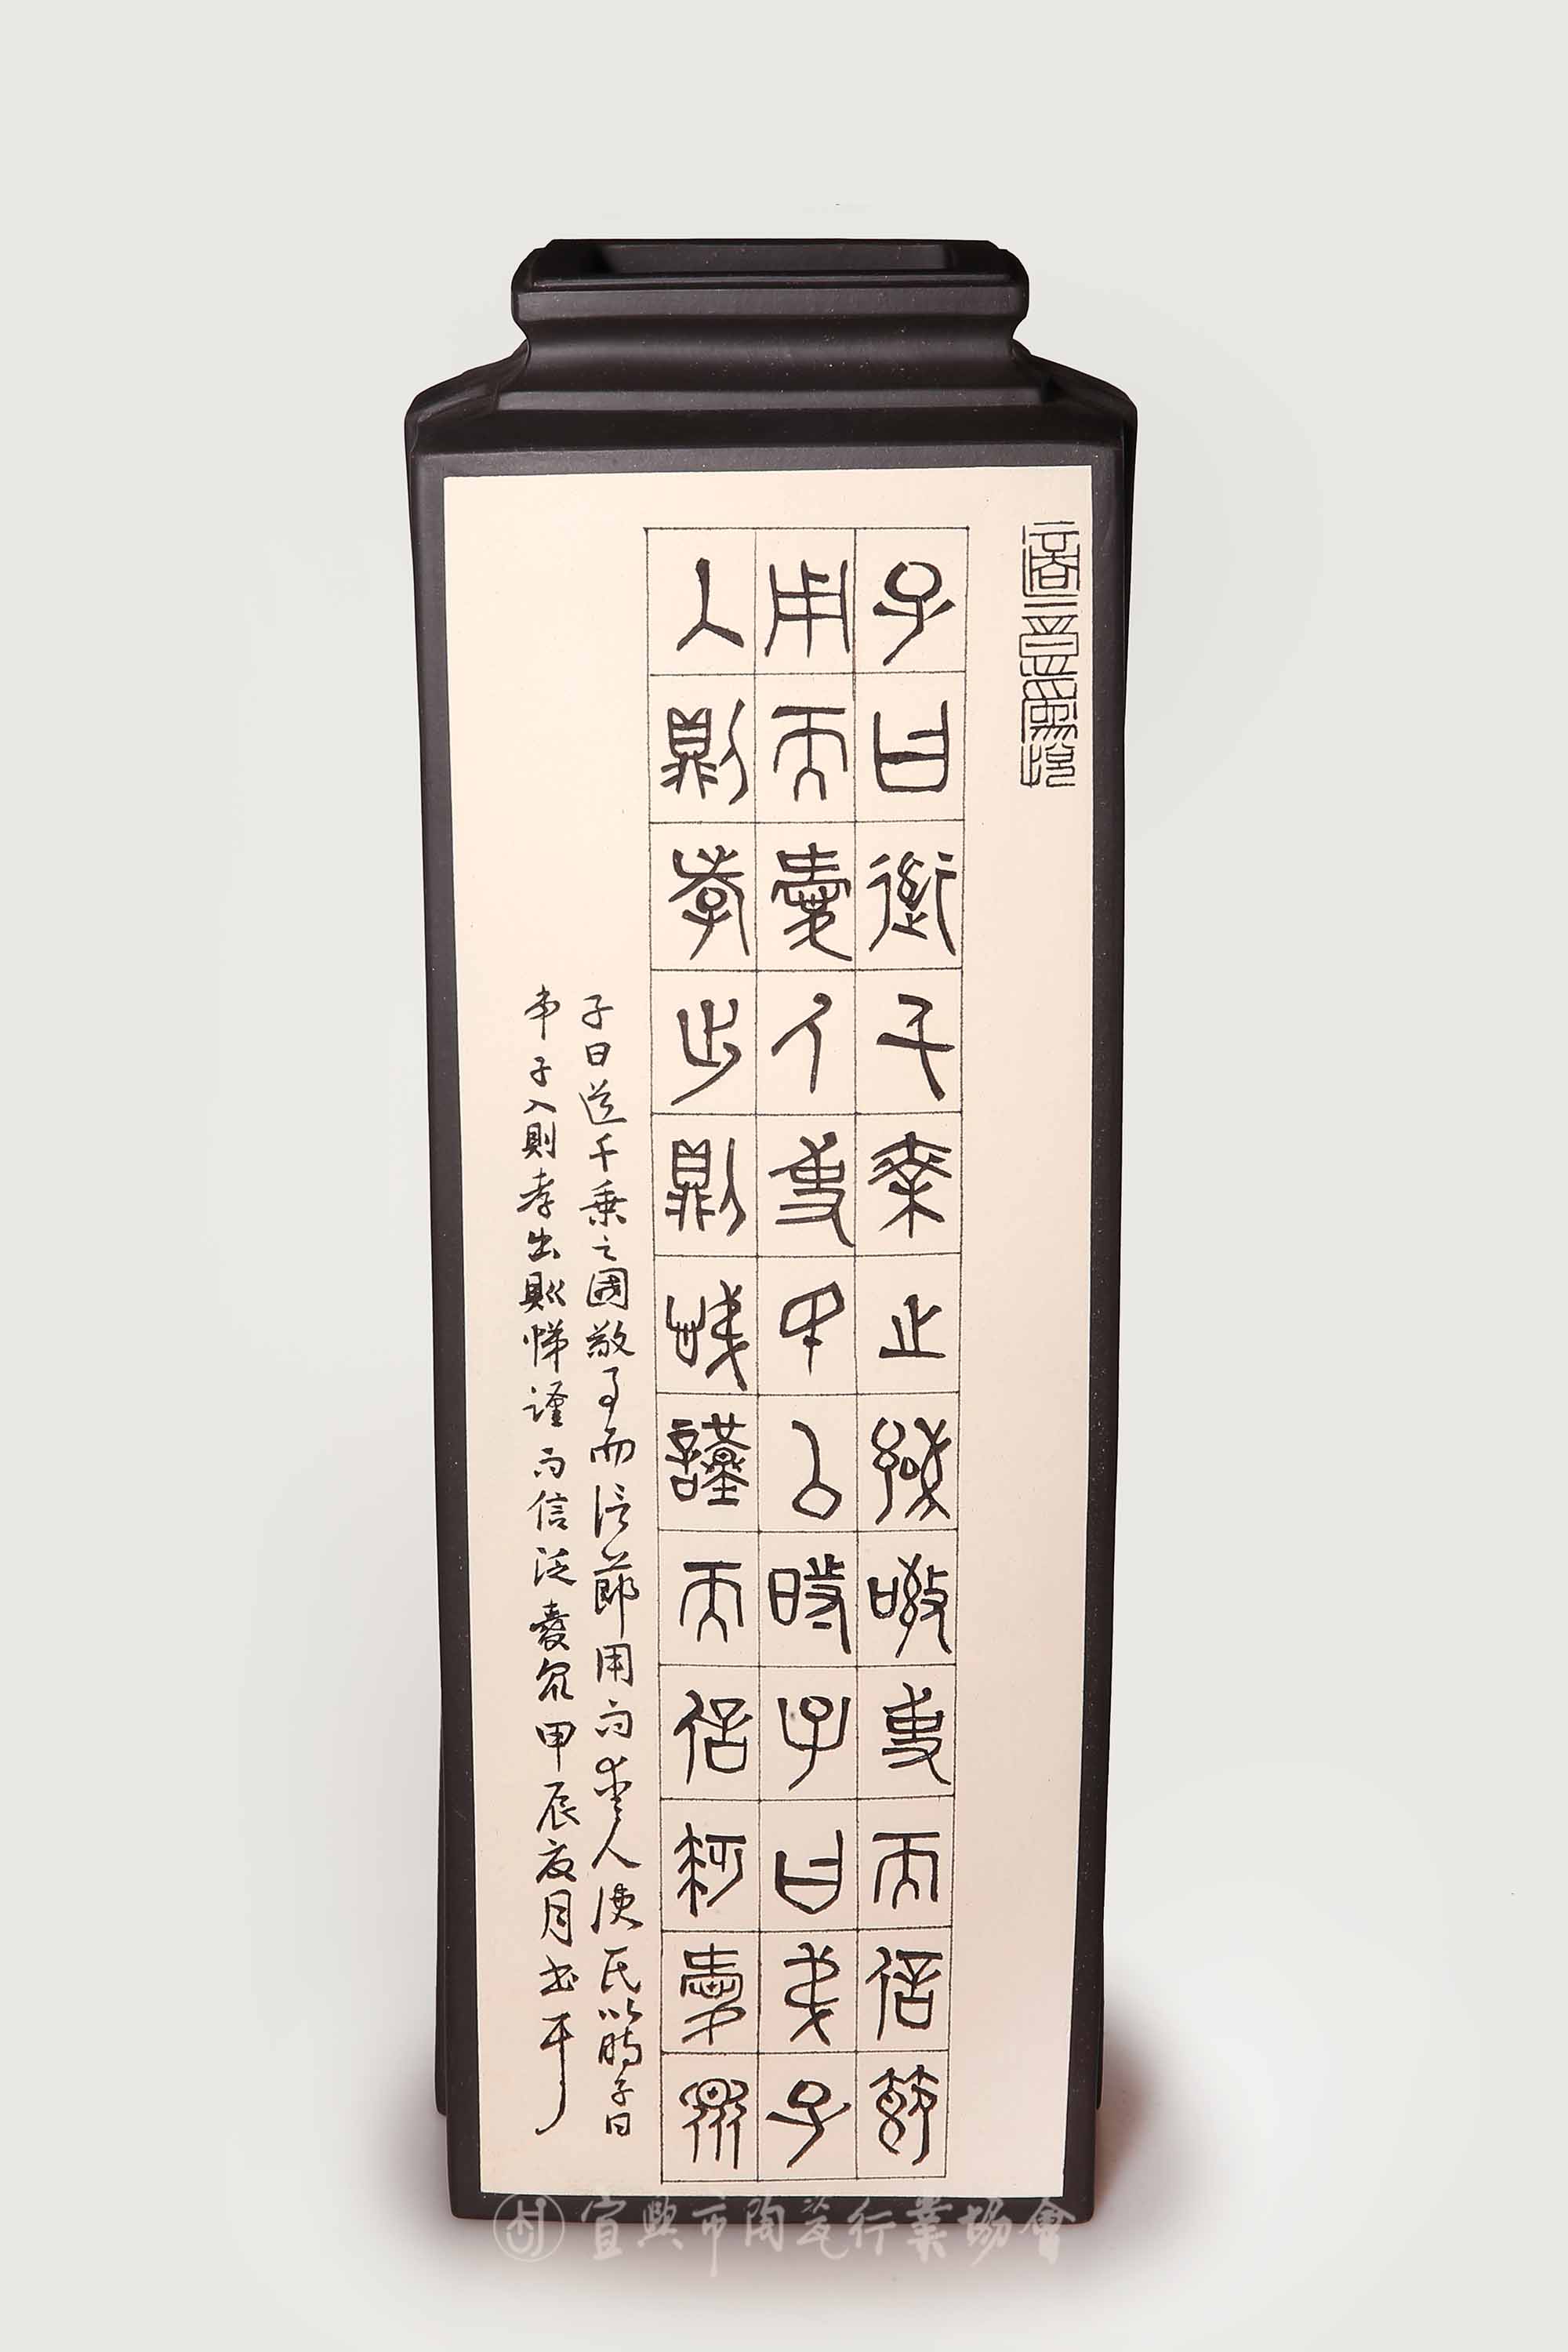 子曰道千乘之國敬事而信節
用而愛人使民以時子曰弟子
入則孝出則悌謹而信泛愛眾
子曰道千乘之國敬事而信節用而愛人使民以時子曰
弟子入則孝出則悌謹而信泛愛眾甲辰夏月书
宜興市陶瓷行業协會